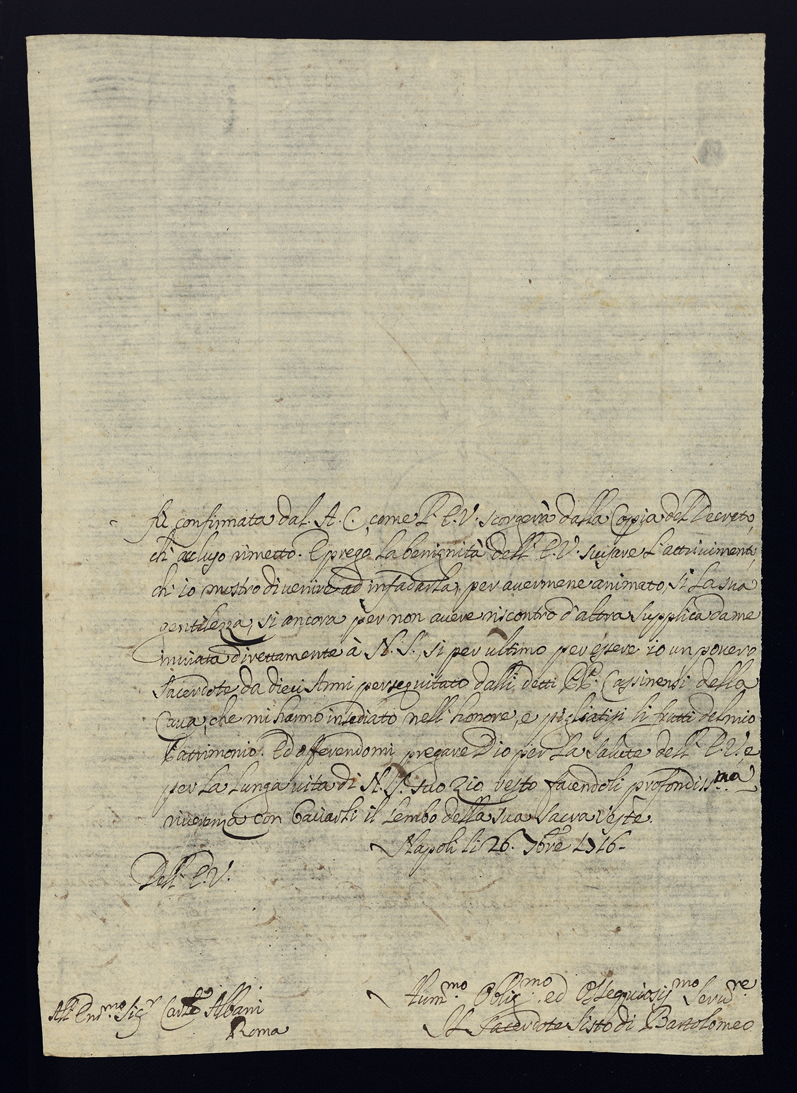 fù confirmata dal A. C., come l'E.V. scorgerà dalla Copia del Decreto,
ch' acluso rimetto. E prego la benignità dell' E.V. scusare l'attrivimento,
ch' io mostro di venire ad infadarla, per avermene animato, sì la sua
gentilezza, sì ancora per non avere riscontro d'altra supplica da me
inviata direttamente à N.S., si per ultimo per essere io un povero
Sacerdote da dieci Anni perseguitato dalli detti Cassinensi della
Cava, che mi hanno insediato nell' honore, e pigliatisi li frutti del mio
Patrimonio. Ed offerendomi pregare Dio per la salute dell' E.V. e
per la lunga vita di N.S. suo Zio resto facendoli profondiss.ma
riverenza con baciarli il lembo della sua sacra veste.
Napoli li 26. 7bre 1716.
Dell' E.V.
All' Em.mo Sig.r Card.l Albani
Roma
Hum.mo Oblig.mo ed Ossequiosis.mo Servid.re
Il Sacerdote Sisto di Bartolomeo